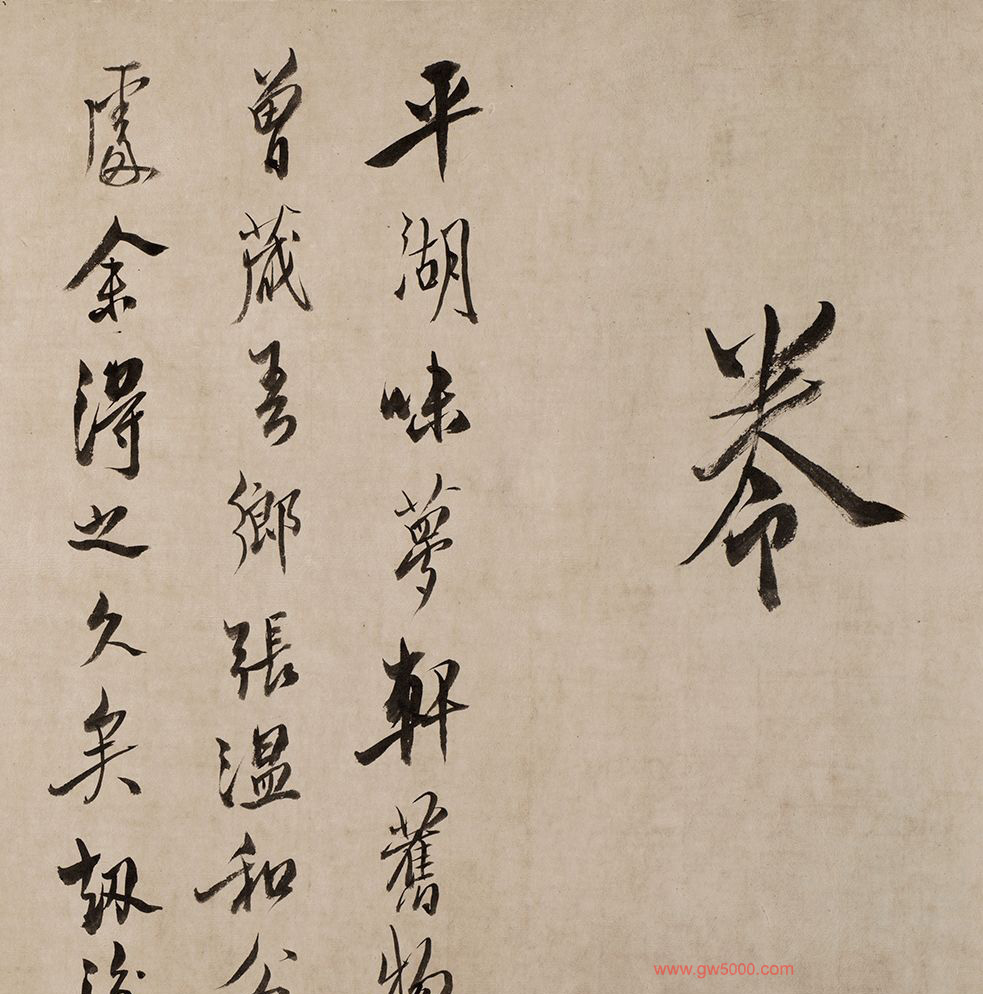 卷
平湖味夢軒舊物
曾藏吾鄉張温和公
處余得之久矣刼
www.gw5000.com